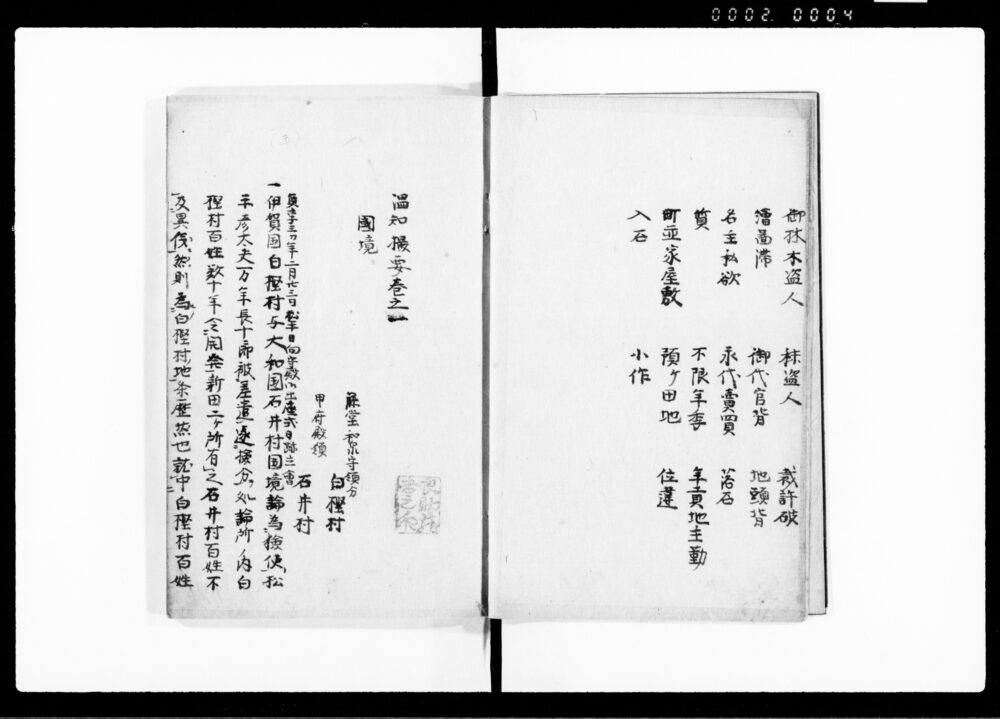 0002 0004
御林木盗人　秣盗人　裁許破
御代官背　地頭背
名主私欲　永代賣買　落石
質　不限年季　年貢地主勤
町並家屋敷　預ケ田地　位違
入石　小作
温知撮要巻之一
國境
藤堂和泉守領分
白樫村
甲府殿領
石井村
一伊賀国白樫村与大和国石井村国境論為検使松
平彦太夫万年長十郎被差遣遂検分処論所ノ内白
樫村百姓数十年令開発新田二ヶ所有之石井村百姓不
及異儀然則為白樫村地条歴然也就中白樫村百姓